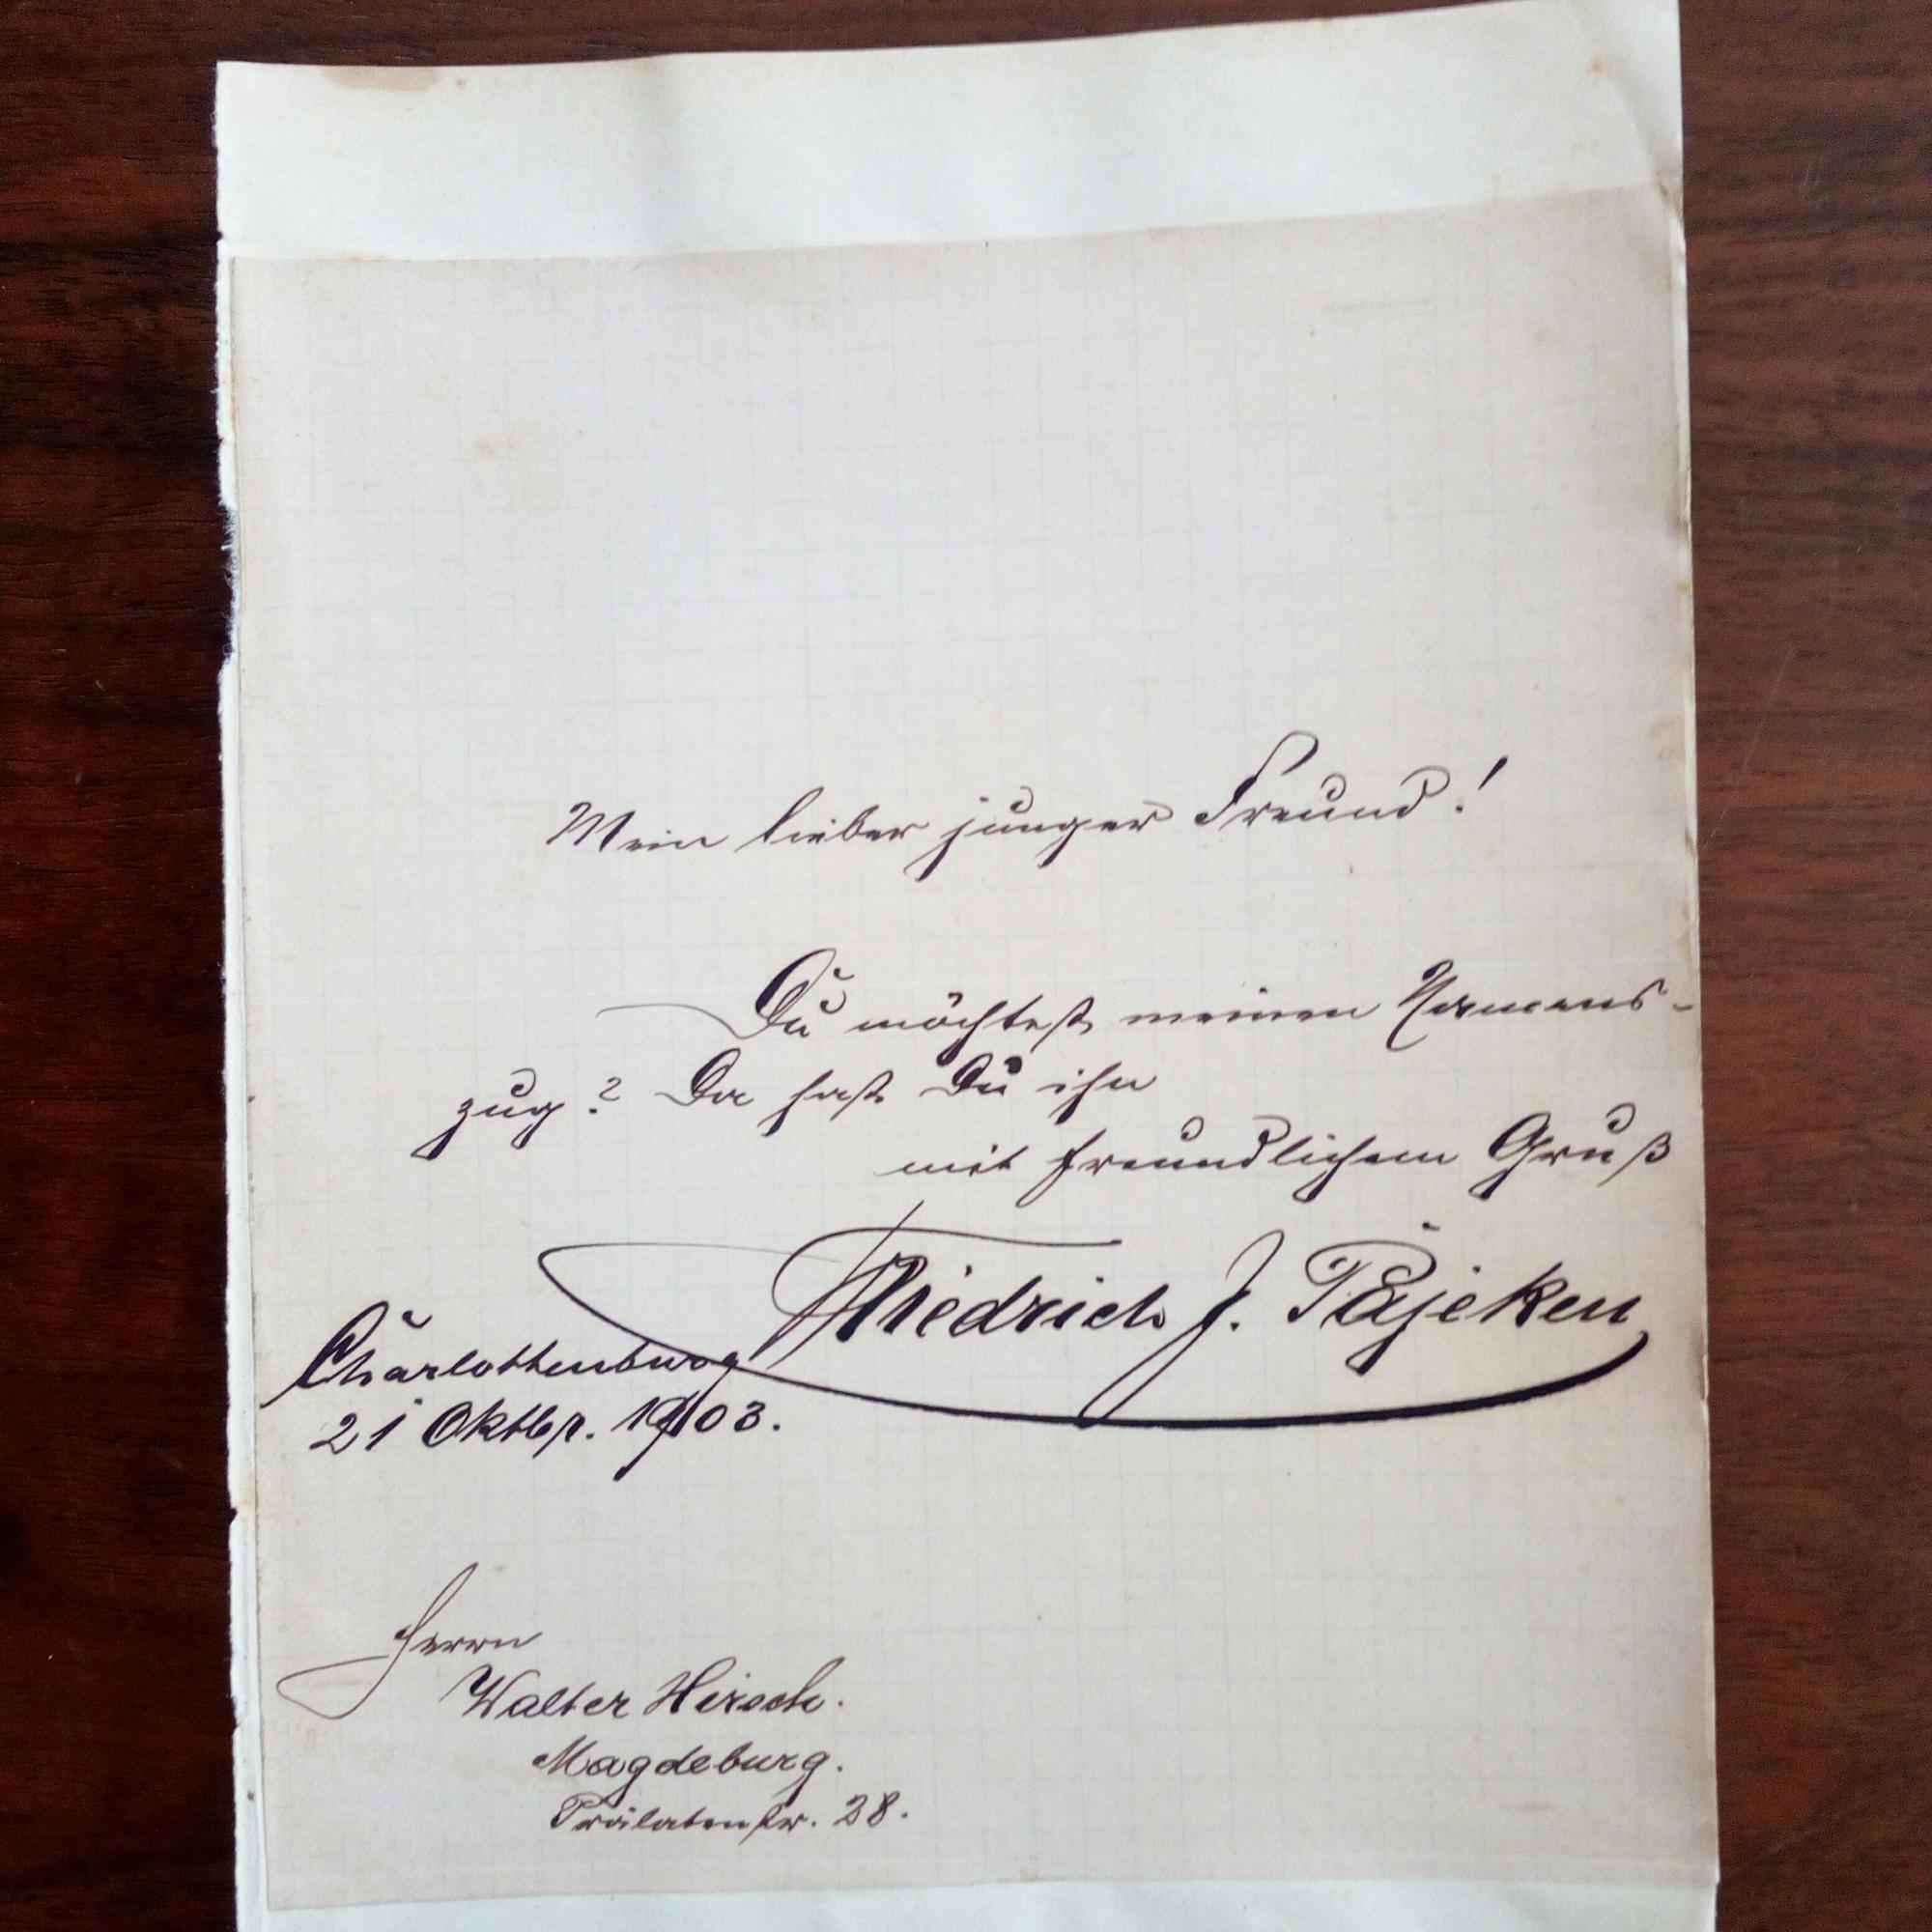 Mein lieber junger Freund!
Du möchtest meinen Namens-
zug? Da hast Du ihn
mit freundlichem Gruß
Friedrich J. Pajeken
Charlottenburg
21 Oktbr. 1903.
Herrn
Walter Hirsch.
Magdeburg.
Prälatenstr. 28.